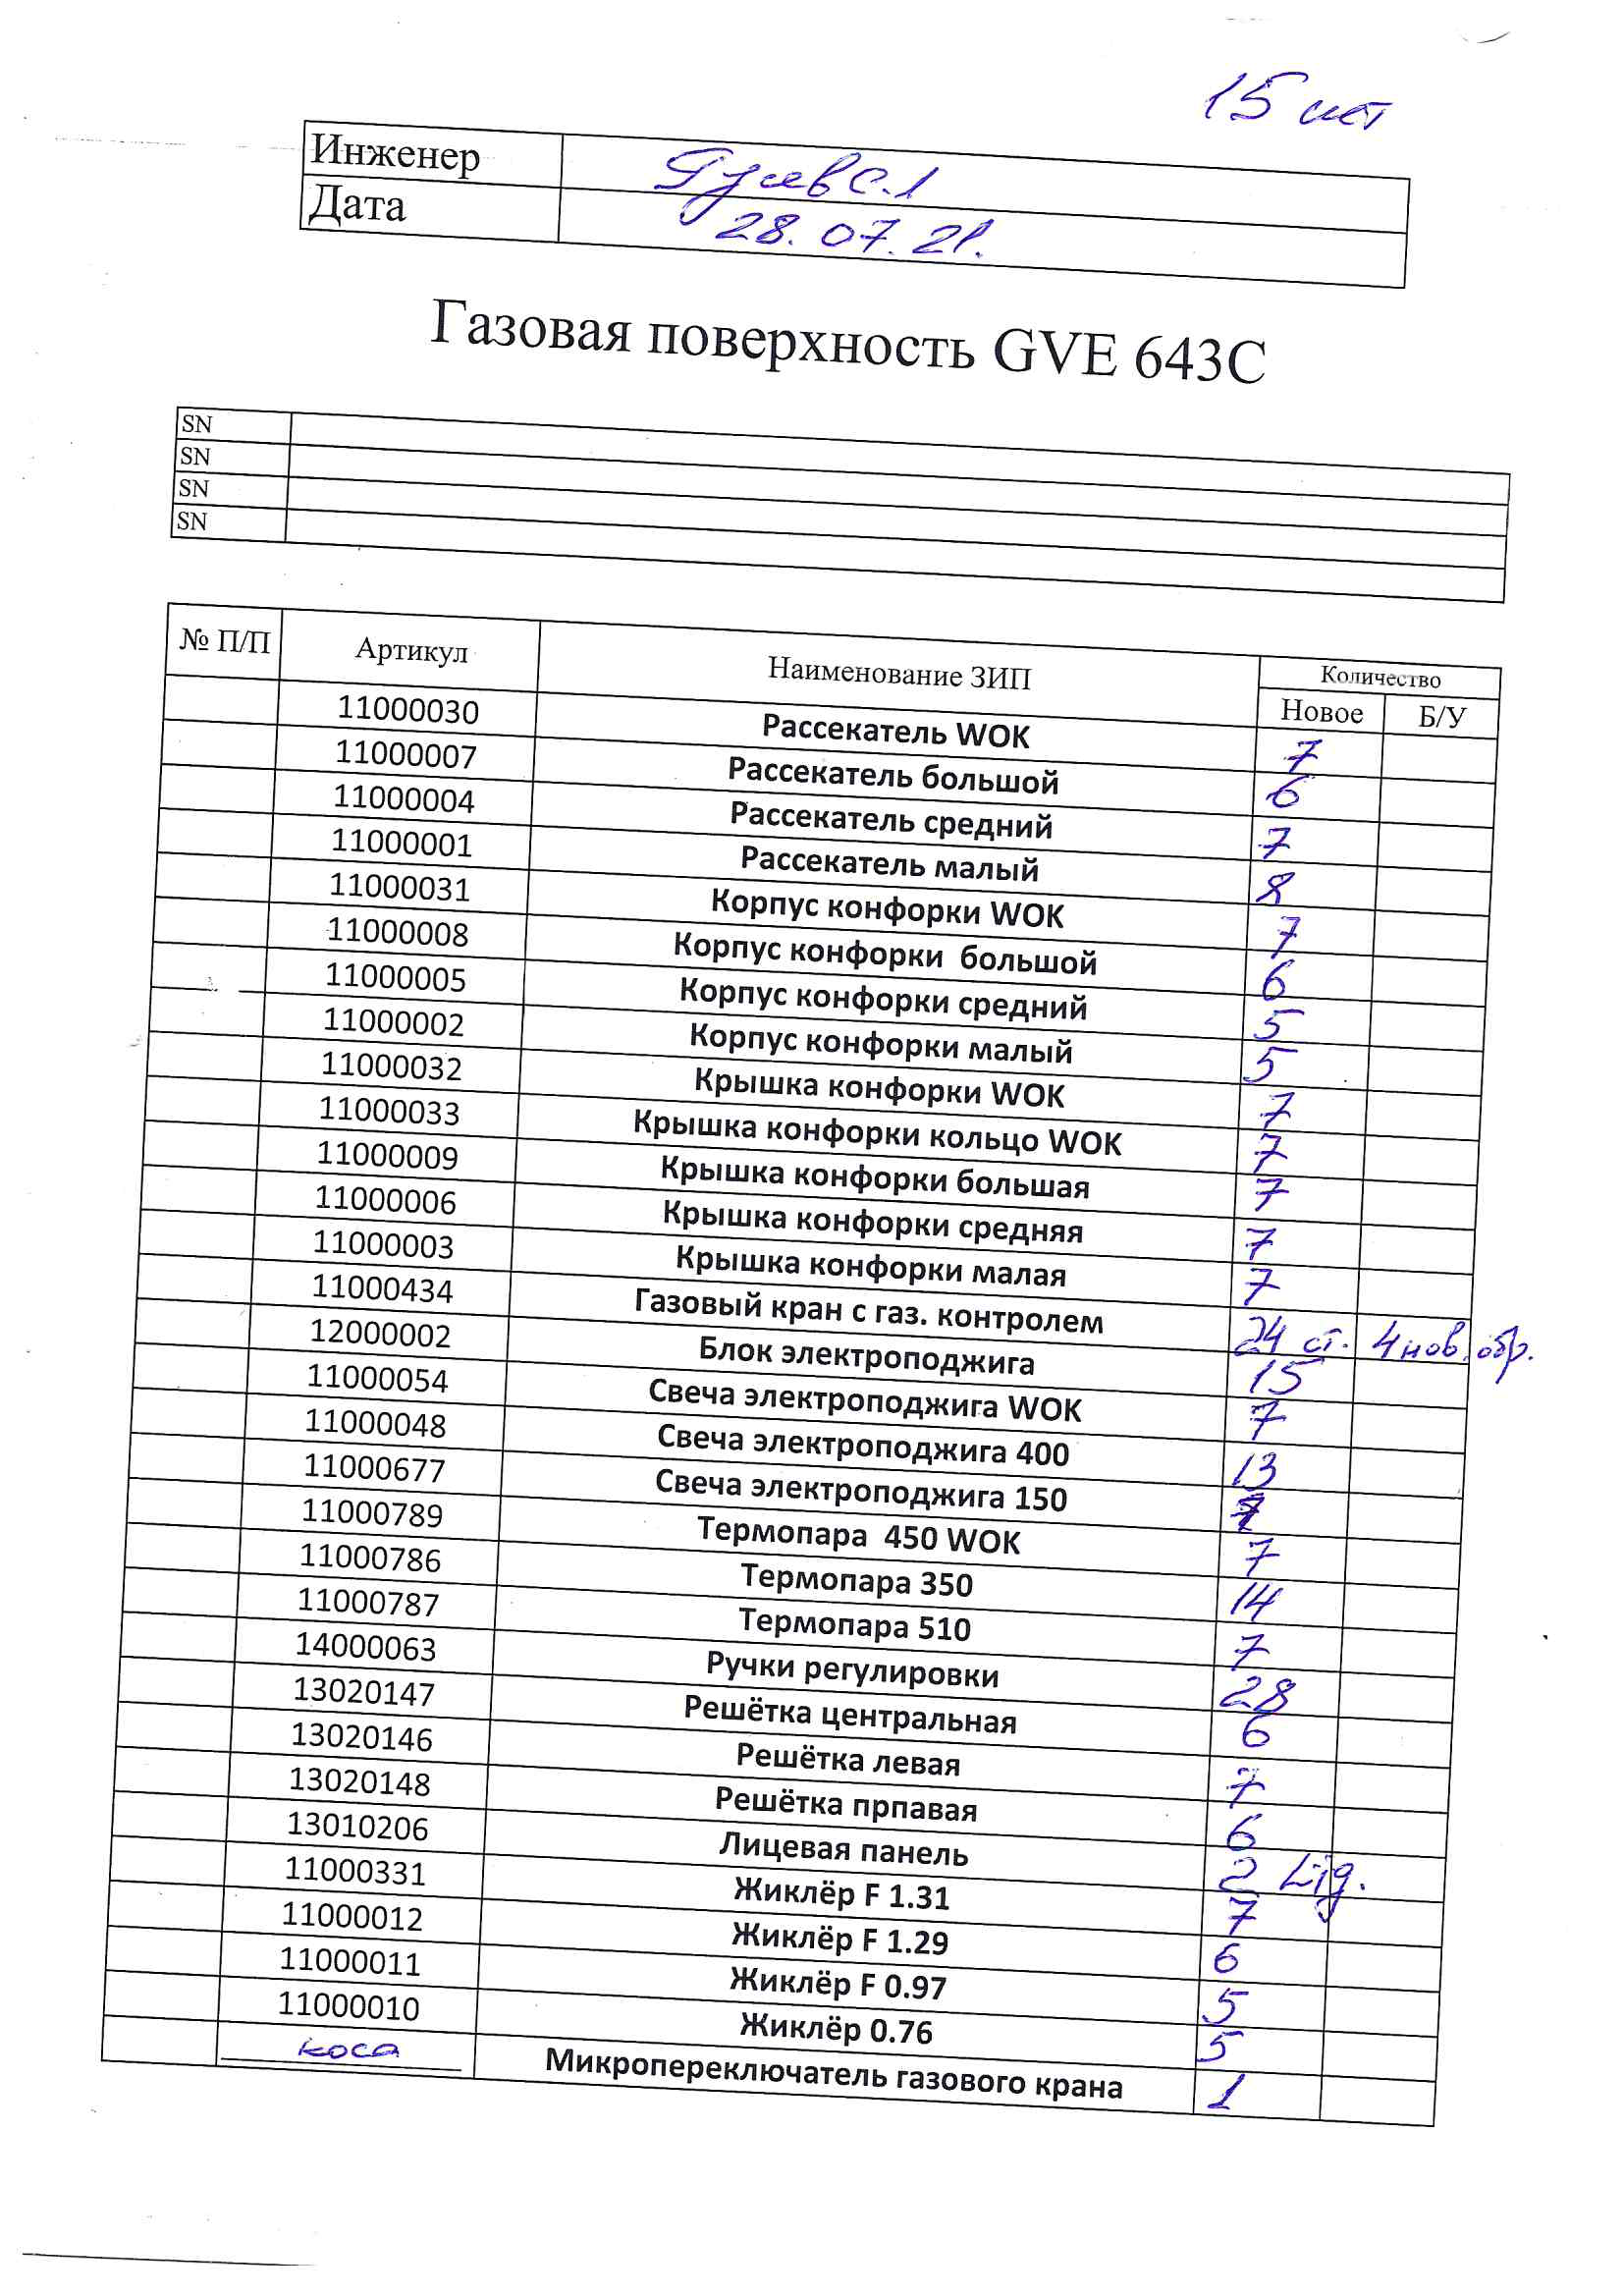 15 шт
Инженер
Дата 28.07.21.
Газовая поверхность GVE 643C
SN
SN
SN
SN
№ П/П Артикул Наименование ЗИП Количество
Новое Б/У
11000030 Рассекатель WOK 7
11000007 Рассекатель большой 6
11000004 Рассекатель средний 7
11000001 Рассекатель малый 8
11000031 Корпус конфорки WOK 7
11000008 Корпус конфорки большой 6
11000005 Корпус конфорки средний 5
11000002 Корпус конфорки малый 5
11000032 Крышка конфорки WOK 7
11000033 Крышка конфорки кольцо WOK 7
11000009 Крышка конфорки большая 7
11000006 Крышка конфорки средняя 7
11000003 Крышка конфорки малая 7
11000434 Газовый кран с газ. контролем 24 ст. 4 нов. обр.
12000002 Блок электроподжига 15
11000054 Свеча электроподжига WOK 7
11000048 Свеча электроподжига 400 13
11000677 Свеча электроподжига 150
11000789 Термопара 450 WOK 7
11000786 Термопара 350 14
11000787 Термопара 510 7
14000063 Ручки регулировки 28
13020147 Решётка центральная 6
13020146 Решётка левая 7
13020148 Решётка прпавая 6
13010206 Лицевая панель 2 Lig.
11000331 Жиклёр F 1.31 7
11000012 Жиклёр F 1.29 6
11000011 Жиклёр F 0.97 5
11000010 Жиклёр 0.76 5
коса Микропереключатель газового крана 1